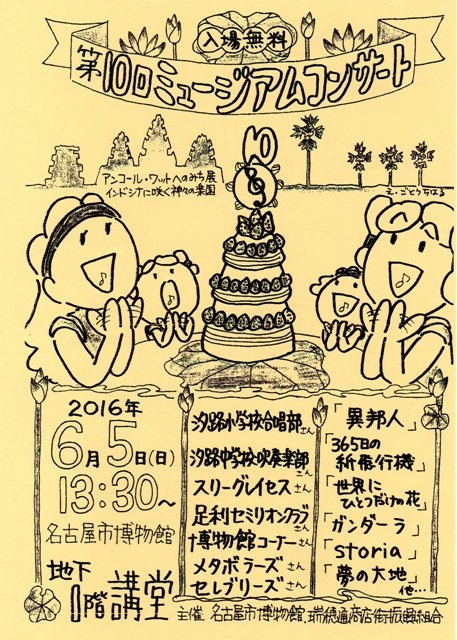 入場無料
第10回ミュージアムコンサート
アンコール・ワットへのみち展
インドシナに咲く神々の楽園
え・ごとうちはる
10
2016年
6月5日(日)
13:30〜
名古屋市博物館
地下
1階講堂
汐路小学校合唱部さん
汐路中学校吹奏楽部さん
スリーグレイセスさん
足利セミリオンクラブさん
博物館コーナーさん
メタボラーズさん
セレブリーズさん
「異邦人」
「365日の
紙飛行機」
「世界に
ひとつだけの花」
「ガンダーラ」
「storia」
「夢の大地」
他…
主催 名古屋市博物館、瑞穂通商店街振興組合